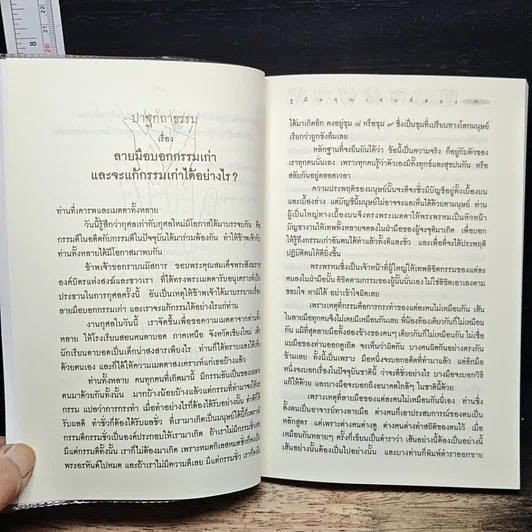 ปาฐกถาธรรม
เรื่อง
ลายมือบอกกรรมเก่า
และจะแก้กรรมเก่าได้อย่างไร?
ท่านที่เคารพและเมตตาทั้งหลาย
วันนี้รู้สึกว่ากุศลเก่ากับกุศลใหม่มีโอกาสได้มาบรรจบกัน คือ
กรรมดีในอดีตกับกรรมดีในปัจจุบันได้มาร่วมพ้องกัน ทำให้ข้าพเจ้ากับ
ท่านทั้งหลายได้มีโอกาสมาพบกัน
ข้าพเจ้าขอกราบนมัสการ ขอบพระคุณสมเด็จพระสังฆราช
องค์บิดรแห่งสงฆ์และชาวเรา ที่ได้ทรงพระเมตตารับอนุเคราะห์เป็น
ประธานในการกุศลครั้งนี้ อันเป็นเหตุให้ข้าพเจ้าได้มาบรรยายเรื่อง
ลายมือบอกกรรมเก่า และเราจะแก้กรรมได้อย่างไรแก่ท่าน
งานกุศลในวันนี้ เราจัดขึ้นเพื่อขอความเมตตาจากท่านทั้งหลาย
ให้โรงเรียนสอนคนตาบอด ภาคเหนือ จังหวัดเชียงใหม่ เด็ก
นักเรียนตาบอดเป็นเด็กน่าสงสารเพียงไร ท่านก็ได้ทราบและได้เห็น
ด้วยตนเอง และก็ได้ให้ความเมตตาสงเคราะห์แก่เธอบ้างแล้ว
ท่านทั้งหลาย คนทุกคนที่เกิดมานี้ มีกรรมอันเป็นของเฉพาะ
ตนมาด้วยกันทั้งนั้น มากบ้างน้อยบ้างแล้วแต่กรรมที่ทำมาจะให้ผล
กรรม แปลว่าการกระทำ เมื่อทำอย่างไรก็ต้องได้รับอย่างนั้น ทำดีก็
ได้รับผลดี ทำชั่วก็ต้องได้รับผลชั่ว ที่เรามาเกิดเป็นมนุษย์ได้นี้ก็เพราะ
กรรมดีกรรมชั่วเป็นองค์ประกอบให้เรามาเกิด ถ้าเราไม่มีกรรมชั่วเลย
มีแต่กรรมดีทั้งนั้น เราก็ไม่ต้องมาเกิด เพราะหมดกิเลสหมดชั่วก็คงเป็น
พระอรหันต์ไปหมด และถ้าเราไม่มีความดีเลย มีแต่กรรมชั่ว เราก็คง
ได้มาเกิดอีก คงอยู่ขุม ๘ หรือขุม ๙ ซึ่งเป็นขุมที่เปรียบทางโลกมนุษย์
เรียกว่าถูกขังลืมเลย
หลักฐานที่จะยืนยันได้ว่า ข้อนี้เป็นความจริง ก็อยู่กับตัวของ
เราทุกคนนั่นเอง เพราะทุกคนรู้ว่าตัวเองมีทั้งทุกข์และสุขปนกัน หรือ
สลับกันอยู่ตลอดเวลา
ความประพฤติของมนุษย์นั้นจะดีจะชั่วมีบัญชีอยู่ทั้งเบื้องบน
และเบื้องต่ำ แต่บัญชีนั้นมนุษย์ไม่อาจจะเห็นได้ด้วยตามนุษย์ ท่าน
ผู้เป็นใหญ่ทางเบื้องบนจึงทรงพระเมตตาให้พระพรหมเป็นหัวหน้า
บัญชางานให้เทพทั้งหลายจดลงในฝ่ามือของผู้จะจุติมาเกิด เพื่อบอก
ให้รู้ถึงกรรมเก่าอันตนได้ทำแล้วทั้งดีและชั่ว และเพื่อที่จะได้ประพฤติ
ปฏิบัติตนให้ดียิ่งขึ้น
พระพรหมซึ่งเป็นเจ้าหน้าที่ผู้ใหญ่ให้เทพลิขิตกรรมของแต่ละ
คนลงในฝ่ามือนั้น ลิขิตตามกรรมของผู้นั้นนั่นเอง ไม่ใช่ลิขิตเอาเองตาม
ชอบใจ หามิได้ อย่าเข้าใจผิดเลย
เพราะเหตุที่กรรมคือการกระทำของแต่ละคนไม่เหมือนกัน เส้น
ในลายมือทุกคนจึงไม่เหมือนกันเลย ที่น้องท้องเดียวกันก็ไม่เหมือน
กัน แม้ที่สุดลายมือทั้งสองข้างของคนๆ เดียวกันก็ไม่เหมือนกัน ไม่เชื่อ
แบมือของท่านออกดูเถิด จะเห็นว่าผิดกัน บางคนผิดกันอย่างตรงกัน
ข้ามเลย ทั้งนี้เป็นเพราะ มือหนึ่งจะบอกอดีตที่ทำมาแล้ว แต่อีกมือ
หนึ่งจะบอกเรื่องในปัจจุบันชาตินี้ ว่าจะดีชั่วอย่างไร บางมือจะบอกวิธี
แก้ให้ด้วย และบางมือจะบอกถึงอนาคตไกลๆ ในชาตินี้ด้วย
เพราะเหตุที่ลายมือของแต่ละคนไม่เหมือนกันนี่เอง ท่านซึ่ง
ตั้งตนเป็นอาจารย์ทางลายมือ ต่างคนก็เอาประสบการณ์ของตนเป็น
หลักสูตร แต่เพราะต่างคนต่างดู ต่างคนต่างทำสถิติของตนไว้ เมื่อ
เหมือนกันหลายๆ ครั้งก็เขียนเป็นตำราว่า เส้นอย่างนี้ต้องเป็นอย่างนี้
เส้นอย่างนั้นต้องเป็นไปอย่างนั้น และบางท่านก็พิมพ์ตำราออกขาย